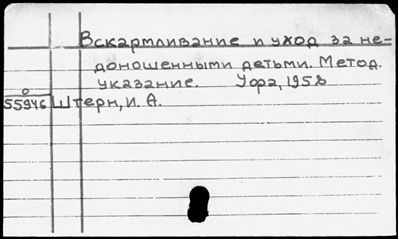 Вскармливание и уход за не-
доношенными детьми. Метод.
указание. Уфа, 1958
55946 Штерн, И. А.